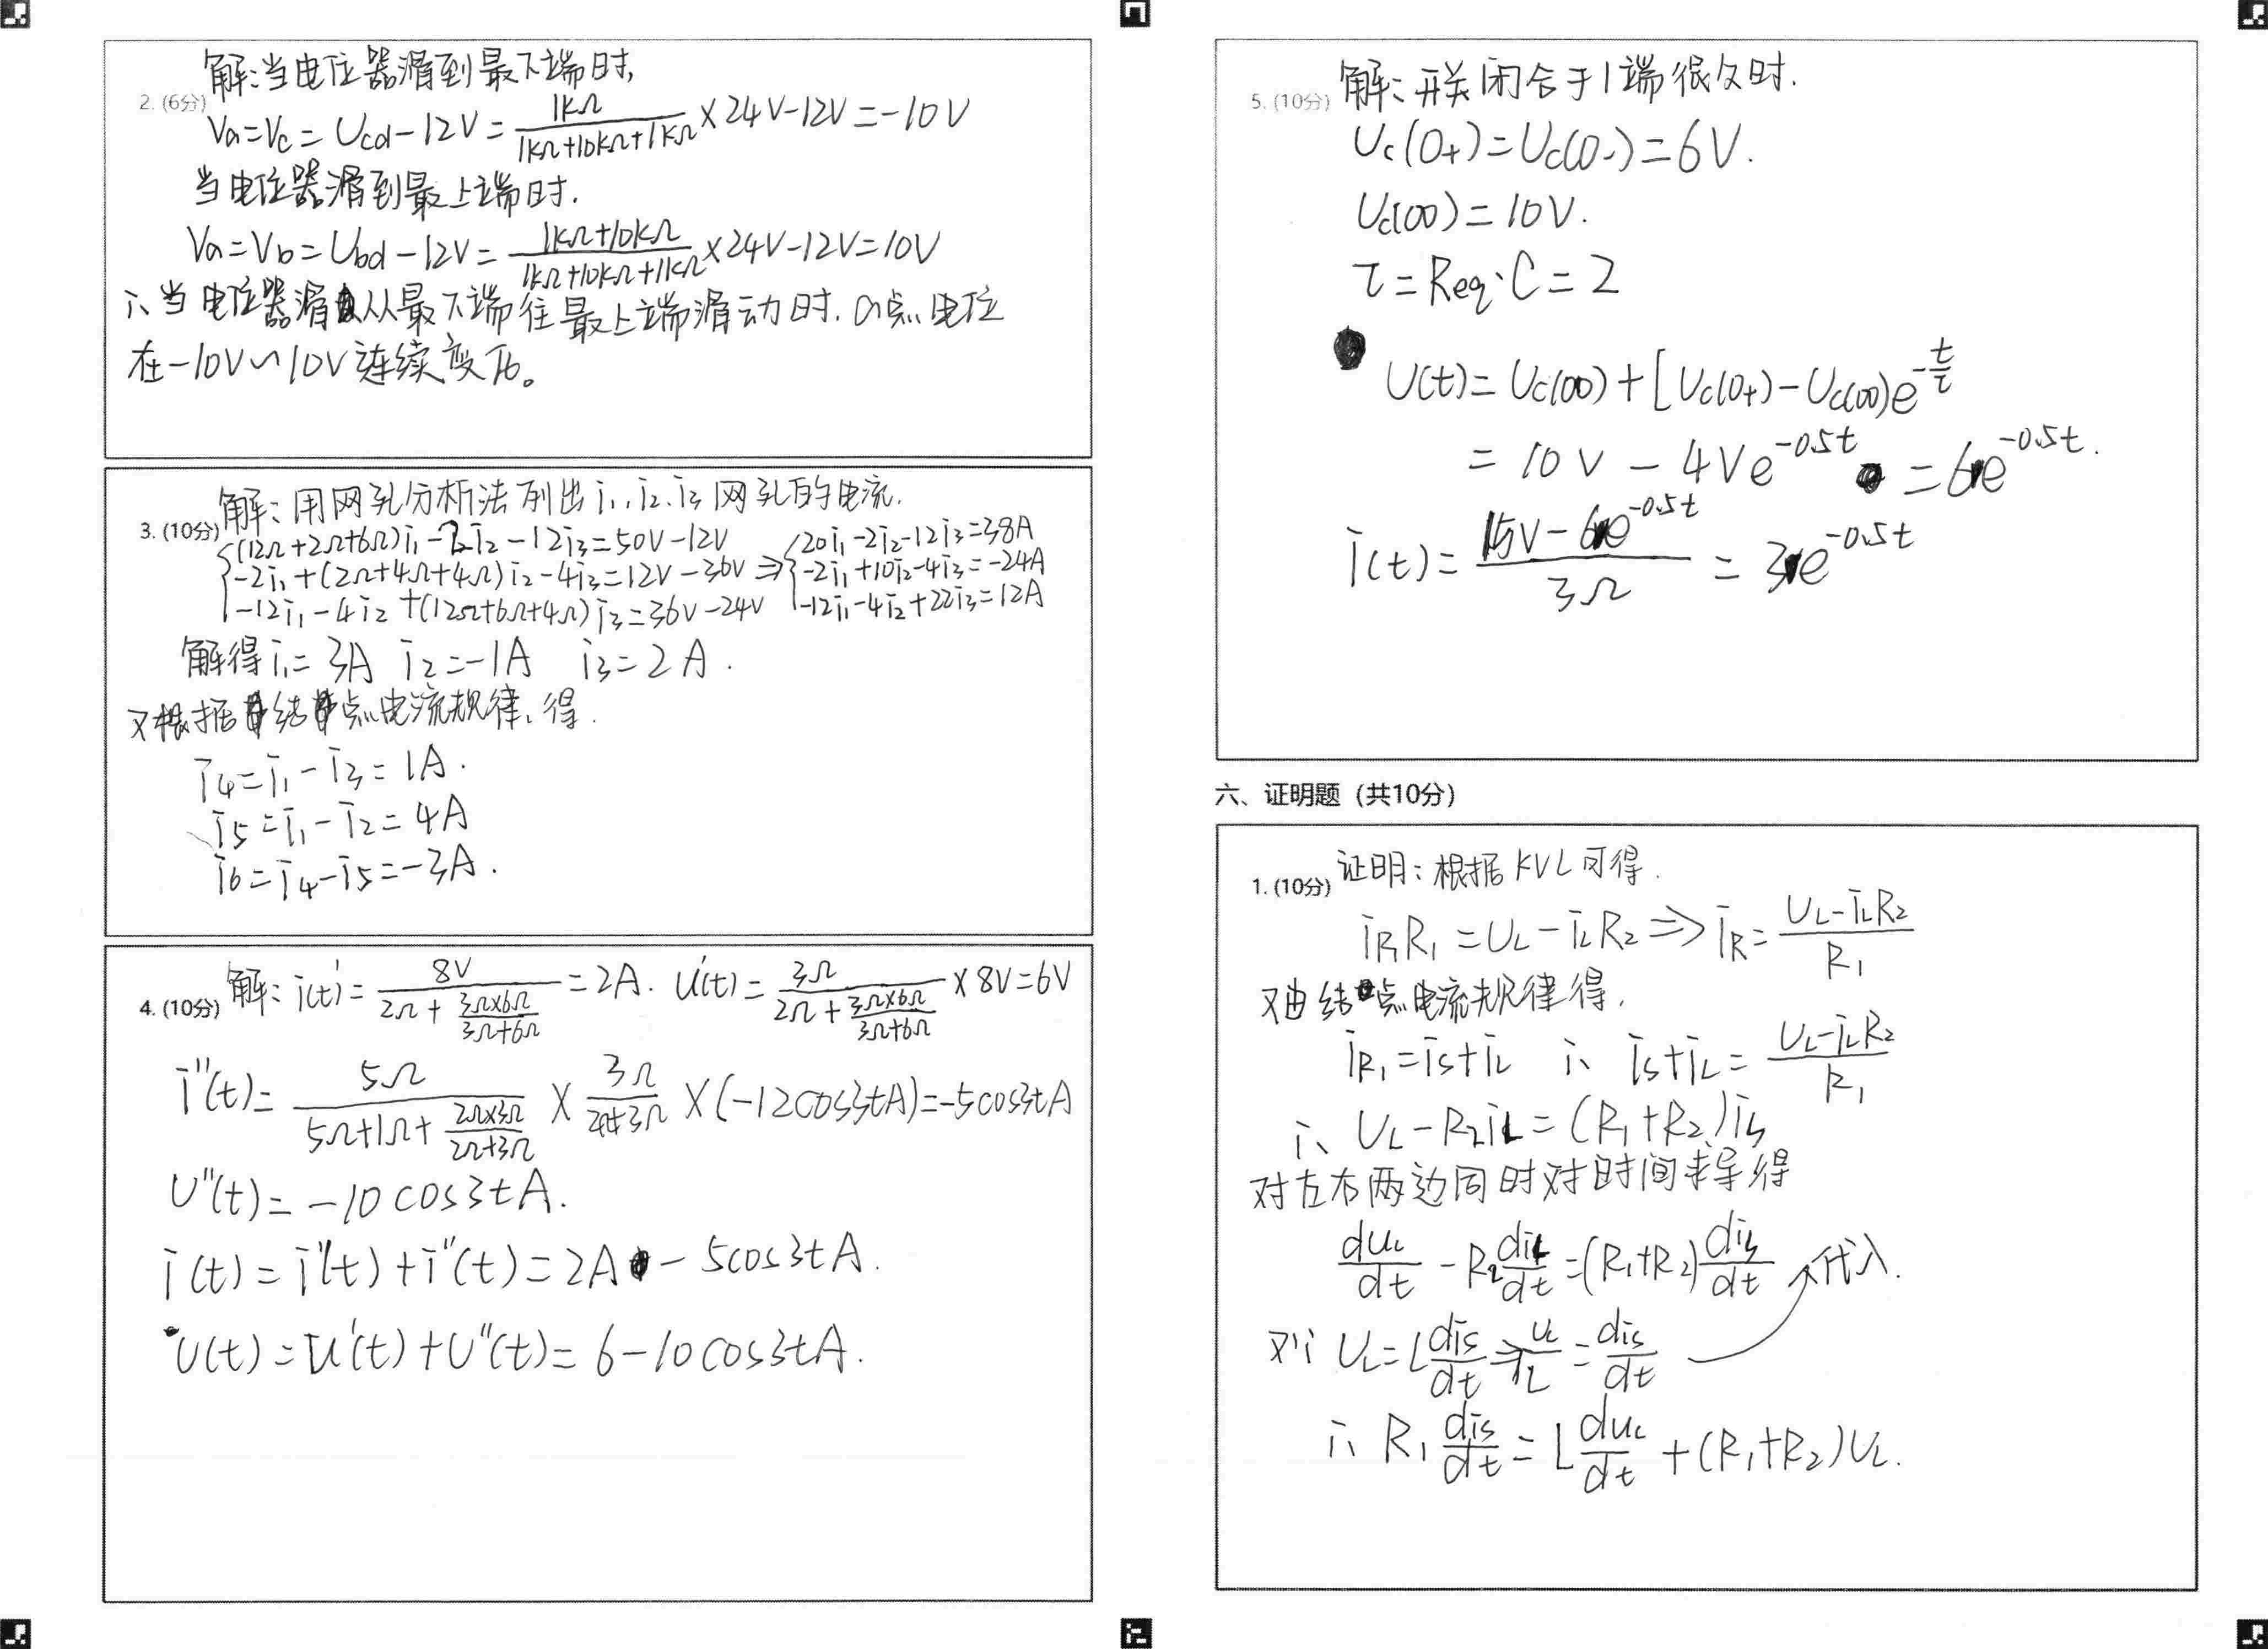 2. (6分) 解:当电位器滑到最下端时,
Va=Vc=Ucd-12V=1kΩ/(1kΩ+10kΩ+1kΩ)×24V-12V=-10V
当电位器滑到最上端时.
Va=Vb=Ubd-12V=(1kΩ+10kΩ)/(1kΩ+10kΩ+1kΩ)×24V-12V=10V
∴当电位器滑从最下端往最上端滑动时.a点电位
在-10V~10V连续变化。
3. (10分) 解:用网孔分析法列出i₁.i₂.i₃网孔的电流.
(12Ω+2Ω+6Ω)i₁-2i₂-12i₃=50V-12V ⇒ 20i₁-2i₂-12i₃=38A
-2i₁+(2Ω+4Ω+4Ω)i₂-4i₃=12V-36V ⇒ -2i₁+10i₂-4i₃=-24A
-12i₁-4i₂+(12Ω+6Ω+4Ω)i₃=36V-24V ⇒ -12i₁-4i₂+22i₃=12A
解得i₁=3A i₂=-1A i₃=2A.
又根据结点电流规律,得.
i₄=i₁-i₃=1A.
i₅=i₁-i₂=4A
i₆=i₄-i₅=-3A.
4. (10分) 解:i(t)'=8V/(2Ω+(3Ω×6Ω)/(3Ω+6Ω))=2A. U'(t)=3Ω/(2Ω+(3Ω×6Ω)/(3Ω+6Ω))×8V=6V
i''(t)=5Ω/(5Ω+1Ω+(2Ω×3Ω)/(2Ω+3Ω))×3Ω/(2Ω+3Ω)×(-12cos3tA)=-5cos3tA
U''(t)=-10cos3tA.
i(t)=i'(t)+i''(t)=2A-5cos3tA.
U(t)=U'(t)+U''(t)=6-10cos3tA.
5. (10分) 解:开关闭合于1端很久时.
Uc(0+)=Uc(0-)=6V.
Uc(∞)=10V.
τ=Req·C=2
U(t)=Uc(∞)+[Uc(0+)-Uc(∞)e^(-t/τ)
=10V-4Ve^(-0.5t)=6e^(-0.5t).
i(t)=(15V-6e^(-0.5t))/3Ω=3e^(-0.5t)
六、证明题(共10分)
1. (10分) 证明:根据KVL可得.
iR₁R₁=UL-iLR₂⇒iR=(UL-iLR₂)/R₁
又由结点电流规律得,
iR₁=is+iL ∴ is+iL=(UL-iLR₂)/R₁
∴ UL-R₂iL=(R₁+R₂)is
对左右两边同时对时间求导得
duL/dt-R₂diL/dt=(R₁+R₂)dis/dt 代入.
又∵UL=Ldis/dt⇒UL/L=dis/dt
∴ R₁dis/dt=LduL/dt+(R₁+R₂)UL.